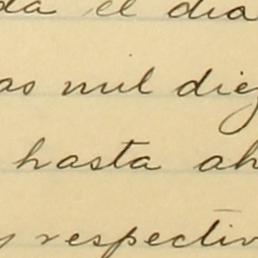 da el dia
as mil diez
hasta ah
y respectiv